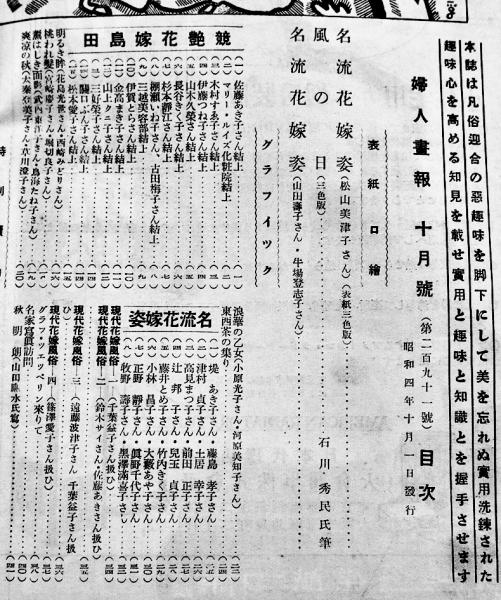 本誌は凡俗迎合の惡趣味を脚下にして美を忘れぬ實用洗鍊された
趣味心を高める知見を載せ實用と趣味と知識とを握手させます
婦人畫報 十月號 (第二百九十一號) 目次
昭和四年十月一日發行
表紙口繪
名流花嫁姿(松山美津子さん)(表紙三色版)
風の日(三色版)……石川秀民氏筆
名流花嫁姿(山田壽子さん・牛場登志子さん)
グラフイツク
競艶花嫁島田
(一)佐藤あき子さん結上……(一)
(二)マリー・ルイズ化粧院結上……(二)
(三)木村すゑ子さん結上……(三)
(四)伊藤つね子さん結上……(四)
(五)山木久榮さん結上……(五)
(六)長谷きく子さん結上……(六)
(七)杉本靜江さん結上……(七)
古田梅子さん結上……(八)
(九)三越美容部結上……(九)
(一〇)伊賀とらさん結上……(一〇)
(一一)金高まき子さん結上……(一一)
(一二)山上タニ子さん結上……(一二)
(一三)三好榮子さん結上
(一四)關口ぶん子さん結上
(一五)松本愛子さん結上
明るき眸(花島光寒さん・西崎みどりさん)
桃われ髮(宮崎慶子さん・堀切良子さん)
薰はしき面影(武内東洋子さん・鳥海たね子さん)
爽凉の秋(太秦登美子さん・草川澄子さん)……(二〇)
浪華の乙女(小原光子さん・河原美知子さん)
東西茶の集り
名流花嫁姿
(一)堤あき子さん・藤島孝子さん
(二)津村貞子さん・土居幸子さん
(三)高見まつ子さん・前田正子さん
(四)辻邦子さん・兒玉貞子さん
(五)藤井とめ子さん・竹内きく子さん
(六)小林昌子さん・大藪あや子さん
(七)正野靜子さん・眞野千代子さん
(八)牧野壽子さん・黑澤滿喜子さん
現代花嫁風俗 一(千葉益子さん扱ひ)
現代花嫁風俗 二(鈴木サイさん・佐藤あきさん扱ひ)
現代花嫁風俗 三(遠藤波津子さん 千葉益子さん扱ひ)
現代花嫁風俗 四(篠澤愛子さん扱ひ)
グラーフ・ツエツペリン來りて
名家寫眞訪問
秋明(朗)(山田勝水氏寫)